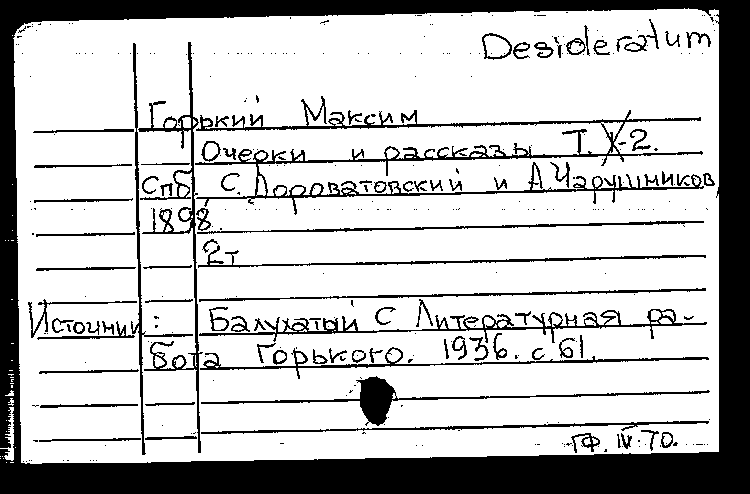 Desideratum
Горький Максим
Очерки и рассказы Т. 1-2.
Спб. С. Дороватовский и А. Чарушников,
1898.
2т
Источник: Балухатый С Литературная ра-
бота Горького. 1936. с. 61.
ГФ. IV. 70.